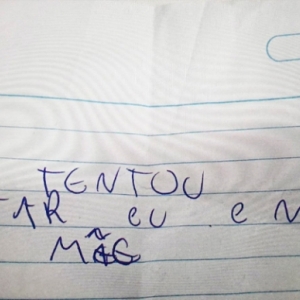 TENTOU
TAR eu e M
MÃE